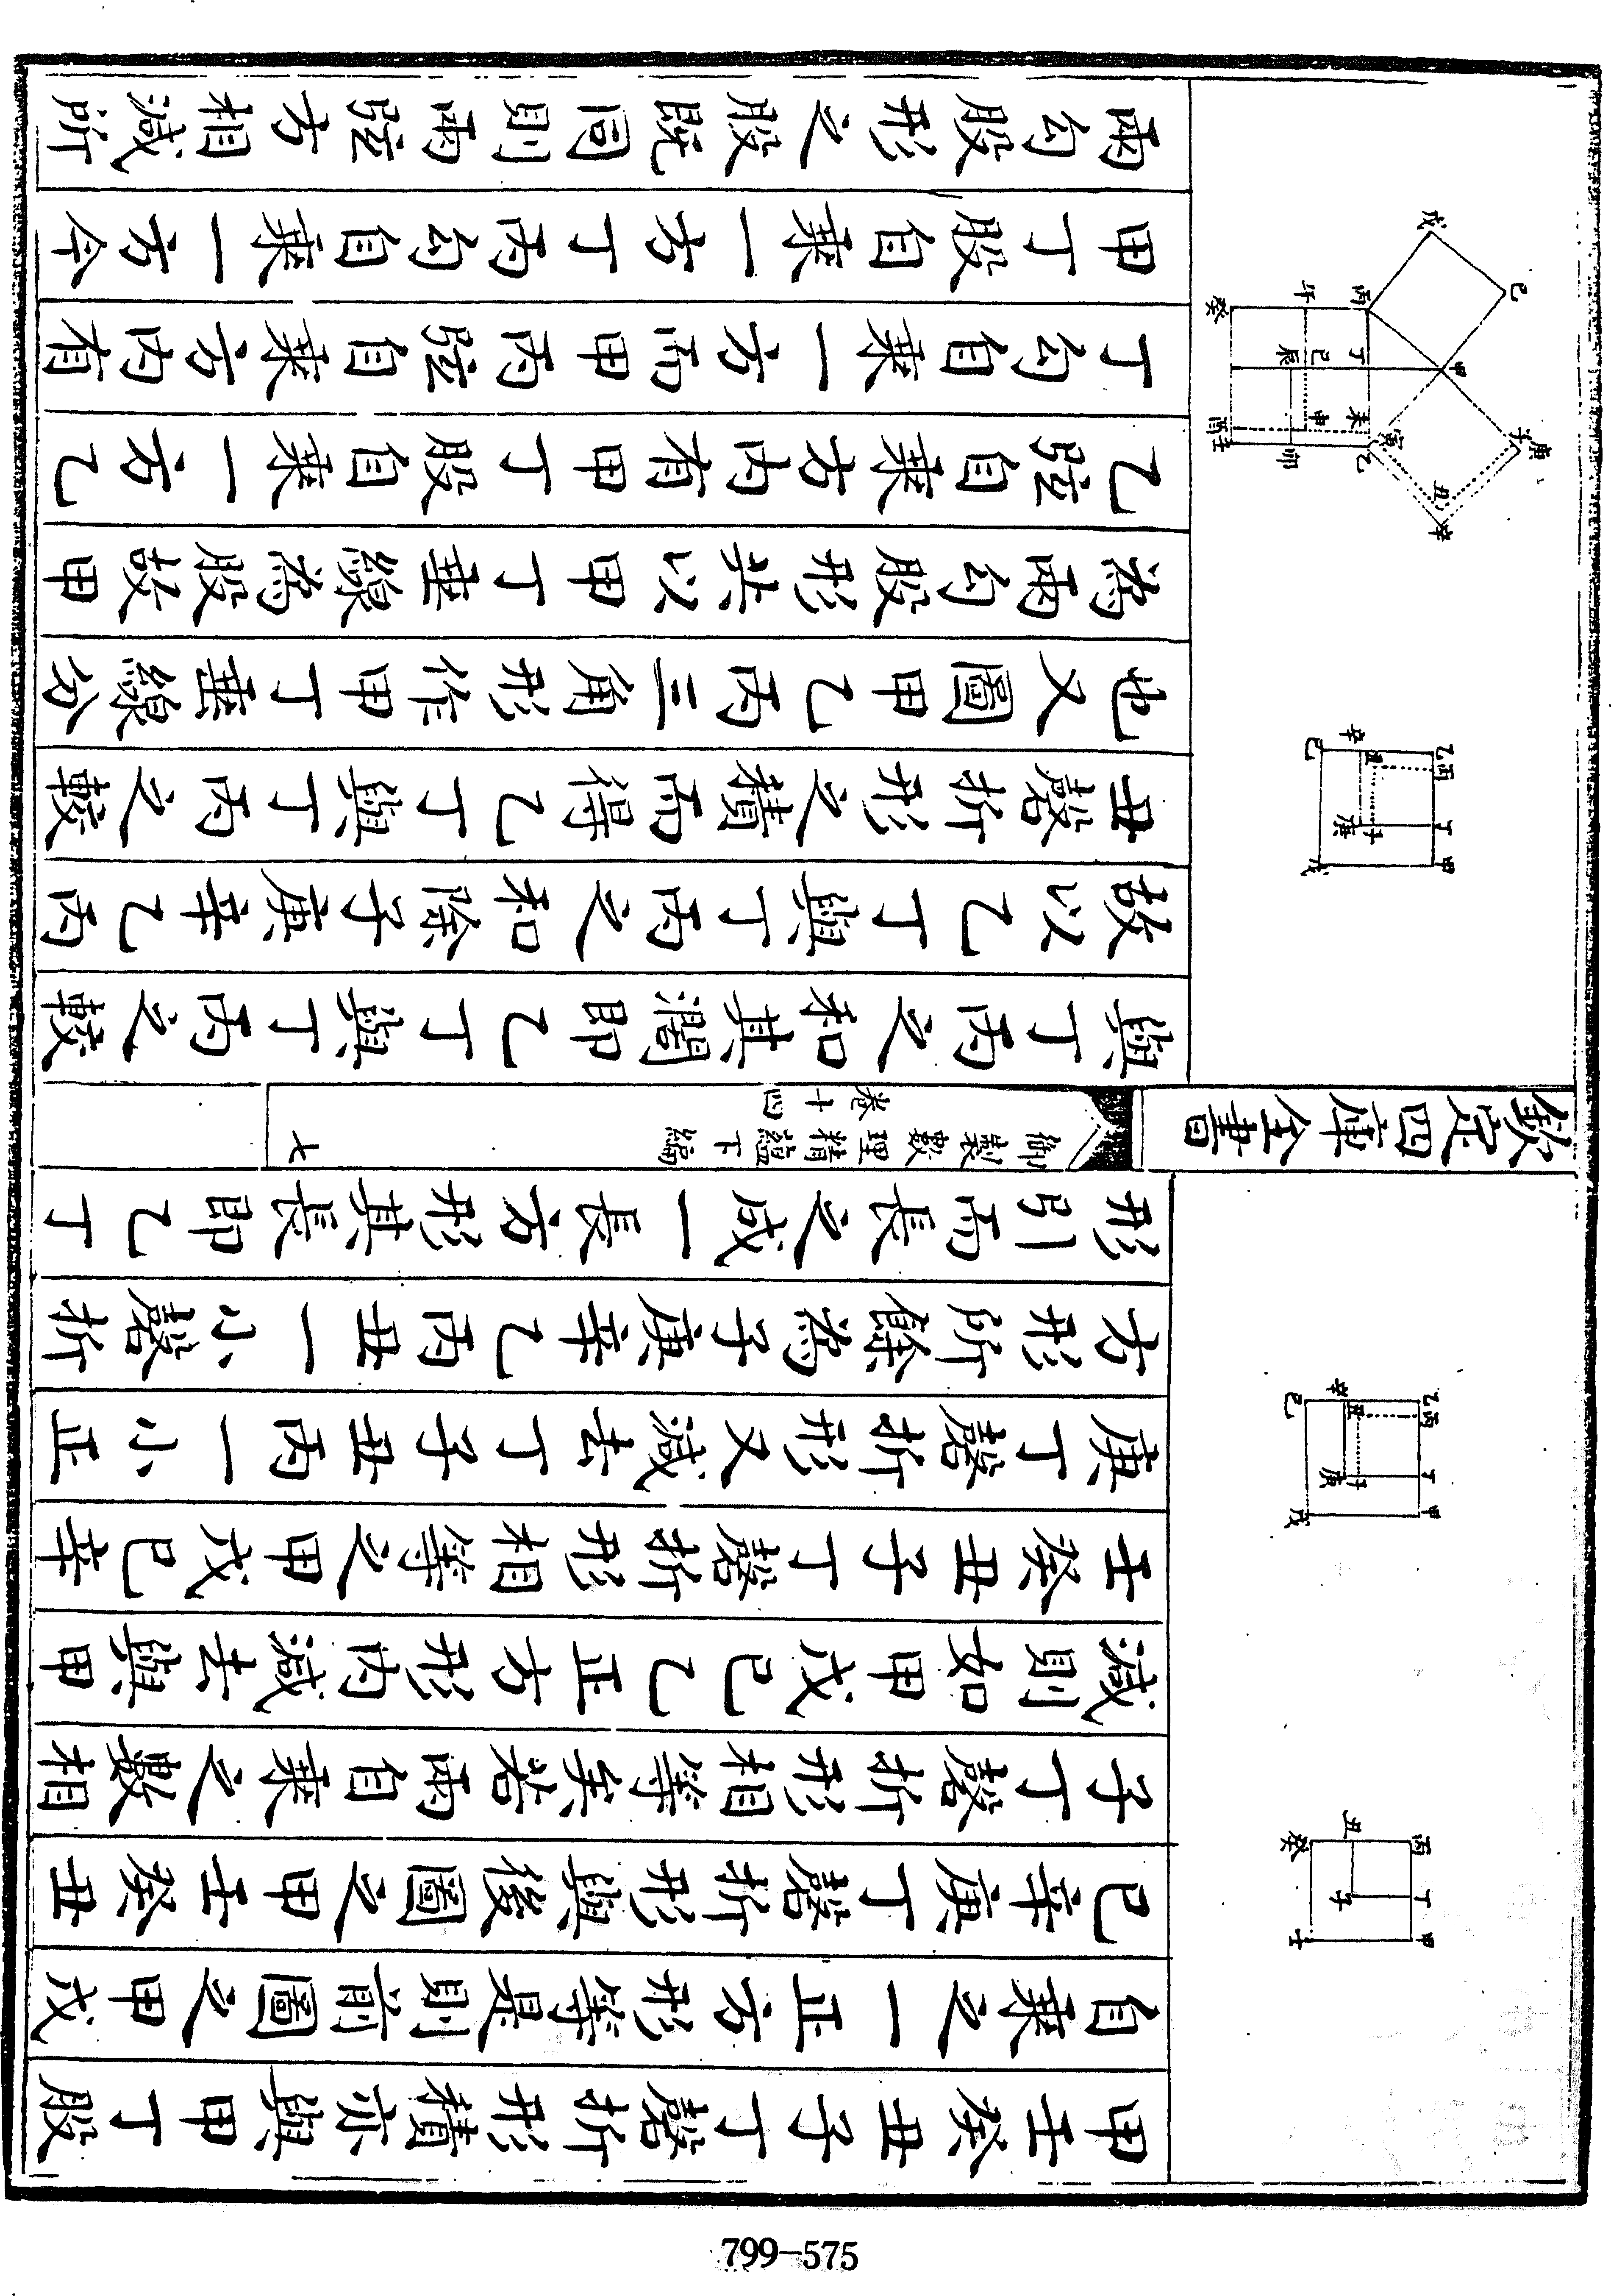 甲壬癸丑子丁磬折形積亦與甲丁股
自乗之一正方形等是則前圖之甲戊
己辛庚丁磬折形與後圖之甲壬癸丑
子丁磬折形相等矣若兩自乗之數相
減則如甲戊己乙正方形内減去與甲
壬癸丑子丁磬折形相等之甲戊己辛
庚丁磬折形又減去丁子丑丙一小正
方形所餘為子庚辛乙丙丑一小磬折
形引而長之成一長方形其長即乙丁
丙丁甲
癸丑子壬
乙丙丁甲
己辛丑庚子戊
欽定四庫全書
御製數理精蘊下編
卷十四
七
與丁丙之和其濶即乙丁與丁丙之較
故以乙丁與丁丙之和除子庚辛乙丙
丑磬折形之積而得乙丁與丁丙之較
也又圖甲乙丙三角形作甲丁垂線分
為兩勾股形共以甲丁垂線為股故甲
乙弦自乗方内有甲丁股自乗一方乙
丁勾自乗一方而甲丙弦自乗方内有
甲丁股自乗一方丁丙勾自乗一方今
兩勾股形之股既同則兩弦方相減所
乙丙丁甲
己辛丑庚子戊
庚子辛丑甲己戊
乙寅未丁丙
卯申辰巳午
壬酉癸
799-575